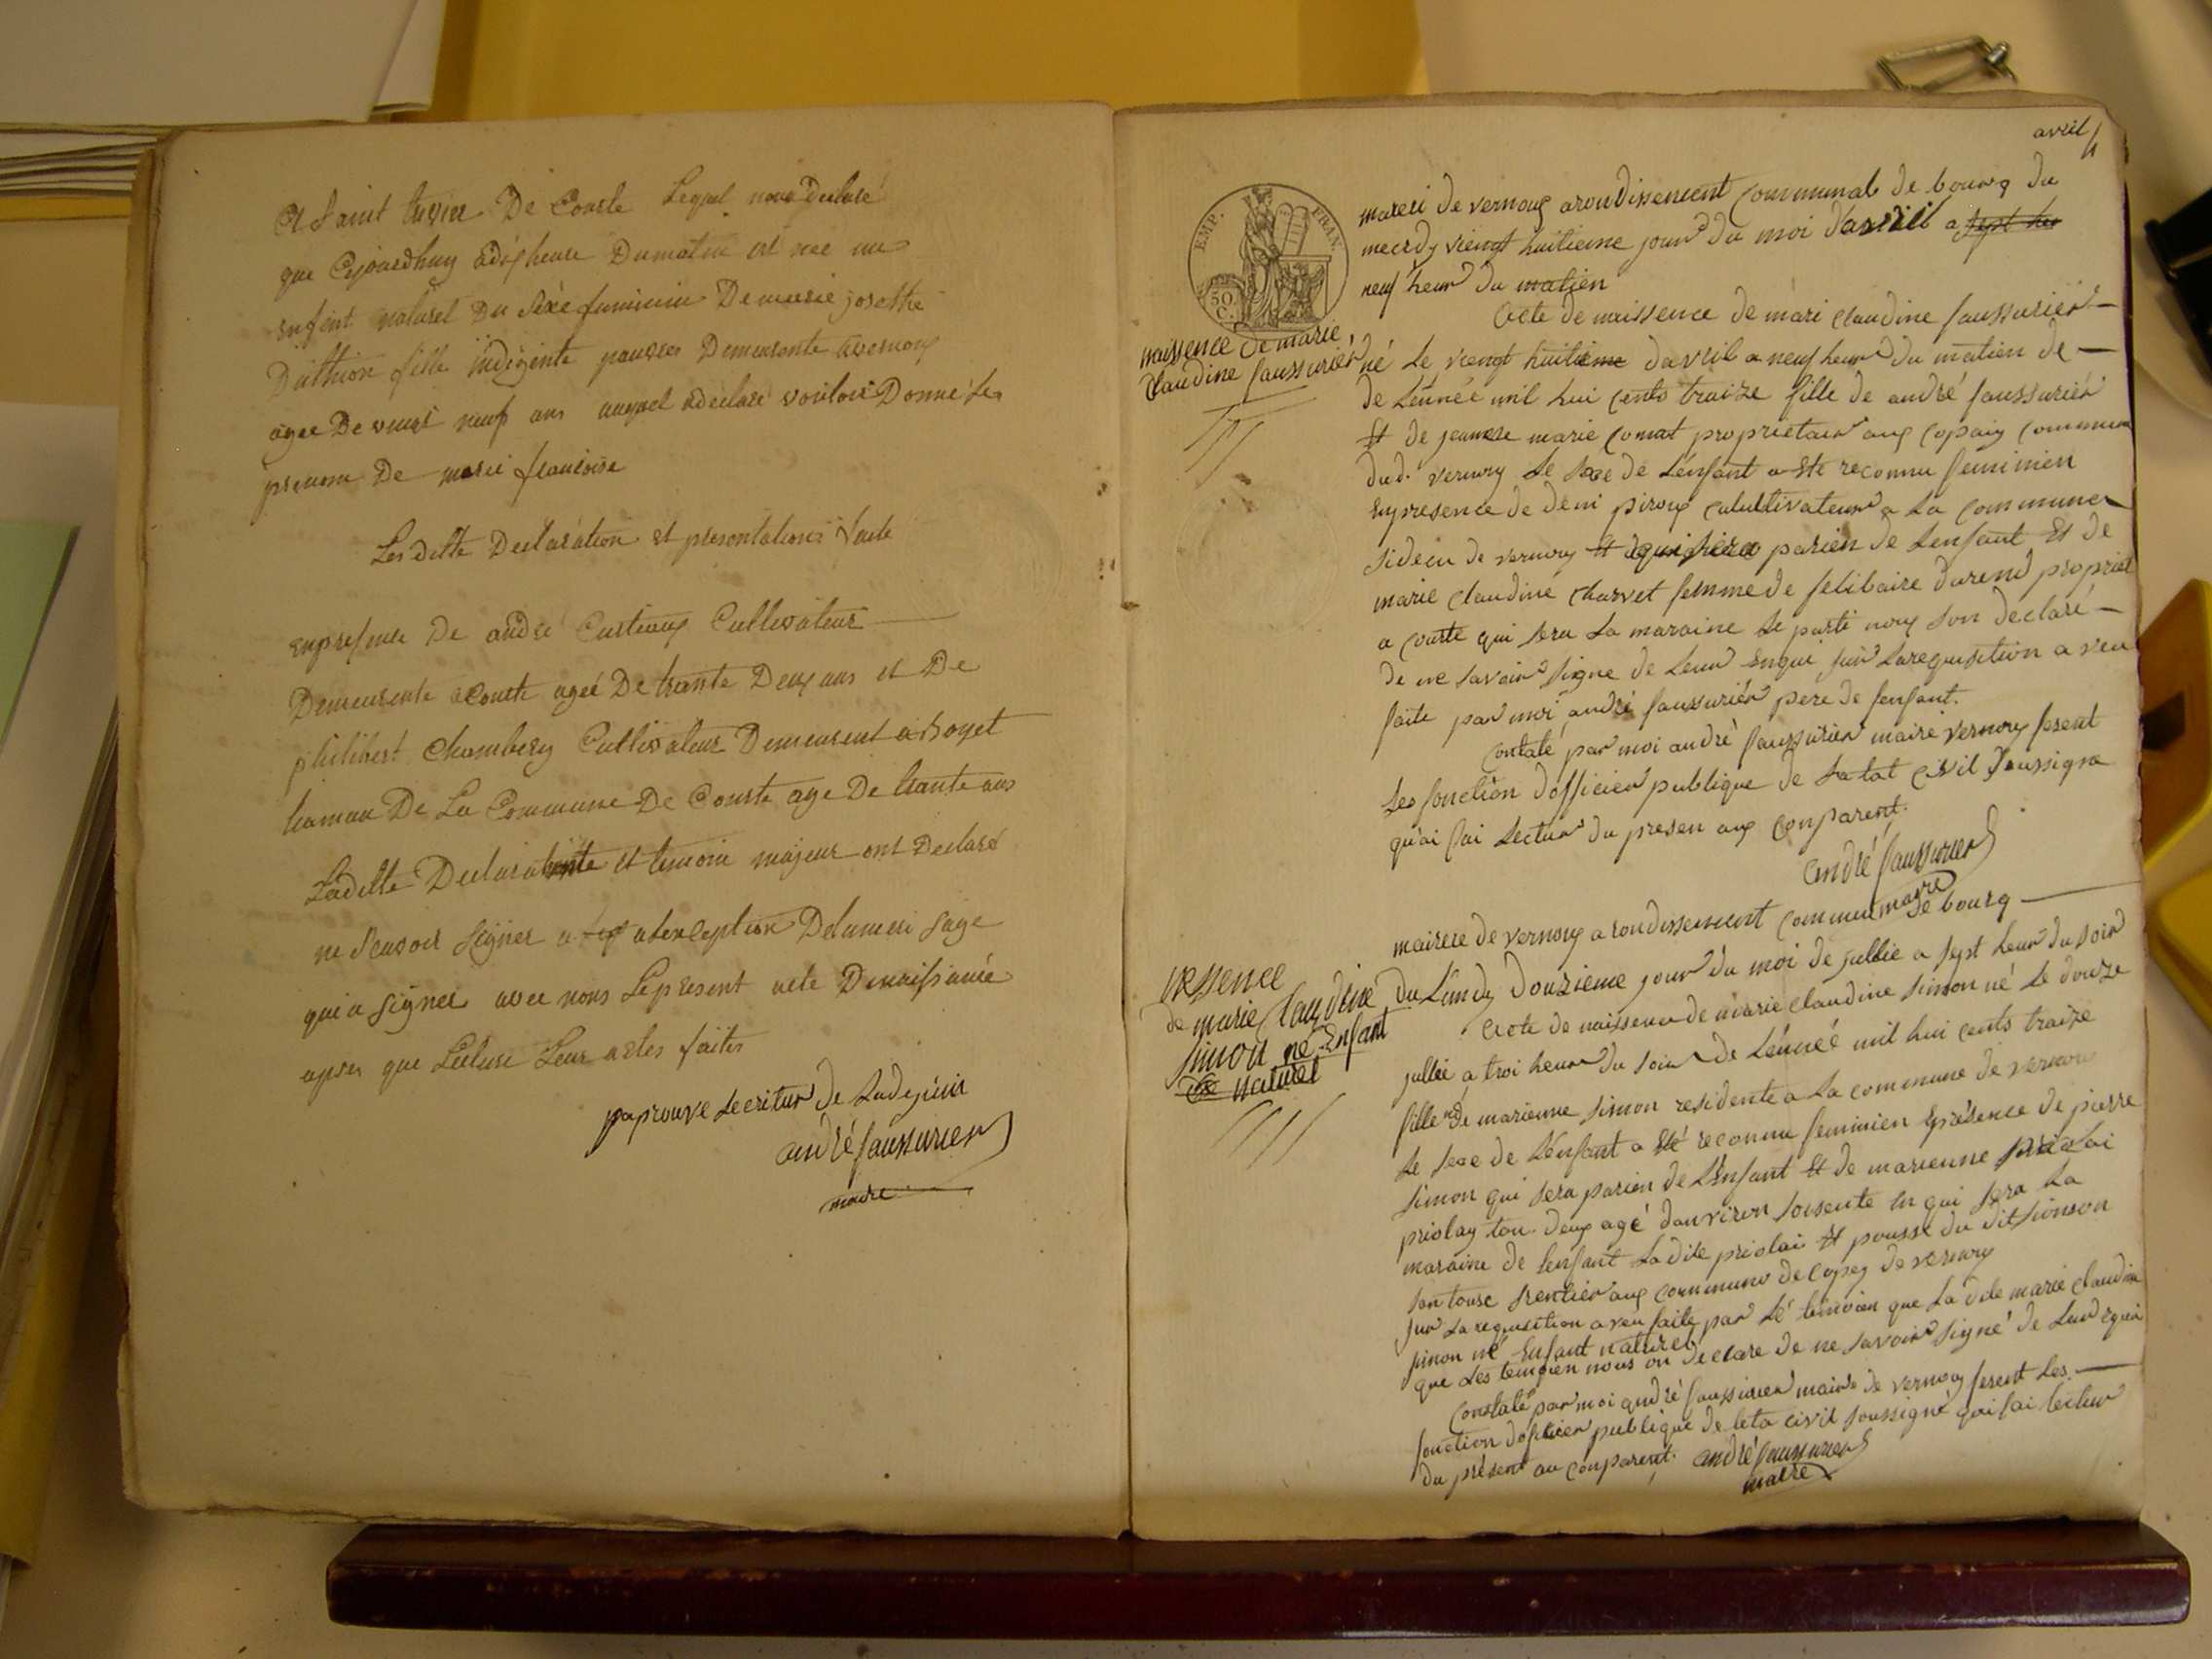 et Saint trivier De Courte Lequel nous declare
que Cejourdhuy adix heure Dumatin est née un
enfent naturel Du sexe feminin De marie josethe
Duthion fille indigente pauvres Demeurente avernoux
agee De vingt neuf ans auquel adeclaré vouloir Donné le
prenom De marie francoise
Lesditte Declaration et presentation faite
enpresence De andré Curtieux Cultivateur
Demeurente aCourte ageé De trante Deux ans et De
philibert Chambery Cultivateur Demeurent aboyet
hamau De La Commune De Courte age De trante ans
Laditte Declarante et temoin majeur ont Declaré
ne scavoir signer a lexception Delameri sage
qui a signer avec nous Lepresent acte Denaissance
apres que Lecture Leur aetes faites
japrouve lecritur de
andré faussurier
maire
avril
EMP. FRAN.
50 C.
maieri de vernoux arondissement communal de bourg du
mecrdy viengt huitieme jour du moi davril a sept heu
neuf heur du matien
naissence de marie
claudine faussurier
Acte de naissence de mari claudine faussurier
né le viengt huitieme davril a neuf heur du matien de
de lénnéé mil hui cents traize fille de andré faussurier
Et de jeanne marie comat proprietair aux copaix commune
dud. vernoux le sexe de lénfant a Eté reconnu feminien
Enpresence de deni piroux culultivateur a la commune
sideçu de vernoux Et qui sera parien de lenfant Et de
marie claudine charvet femme de felibaire durend propriet
a courte qui sera la maraine le parti nous son declaré
de ne savoir signe de leur enqui sur larequisition a veu
faite par moi andré faussurier pere de lenfant.
contaté par moi andré faussurier maire vernoux fesent
les fonction dofficier publique de latat civil soussigne
qu'ai fai lectur du presen aux conparent.
andré faussurier
maire
mairere de vernoux arondissement commun de bourg
du lundy douzieme jour du moi de jullie a sept heur du soir
nessence
de marie claudine
simon né Enfant
naturel
Acte de naissence de marie claudine simon né le douze
jullie a troi heur du soir de lénnéé mil hui cents traize
fille de marienne simon residente a la commune de vernoux
le sexe de lénfant a Eté reconnu feminien Eprésence de pierre
simon qui sera parien de lEnfant Et de marienne priolai
priolay tou deux agé danviron soisente en qui sera la
maraine de lenfant la dite priolai Et pousse du dit simon
son tousc frentier aux commune de copey de vernoux
sur la requisition a veu faite par lé temoien que la dite marie claudine
simon né Enfant naturel
que les temoien nous on declare de ne savoir signé de leur
constaté par moi andré faussurier maire de vernoux fesent les
fonction doficier publique de leta civil soussigné qui fai lectur
du présent au conparent. andré faussurier
maire